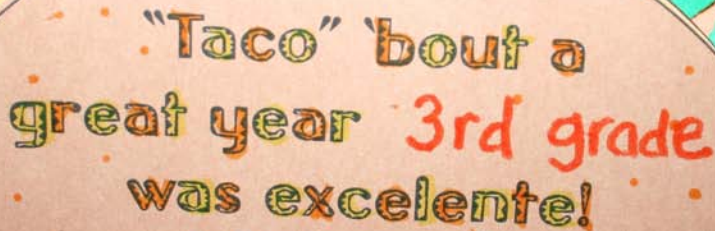 "Taco" 'bout a
great year 3rd grade
was excelente!